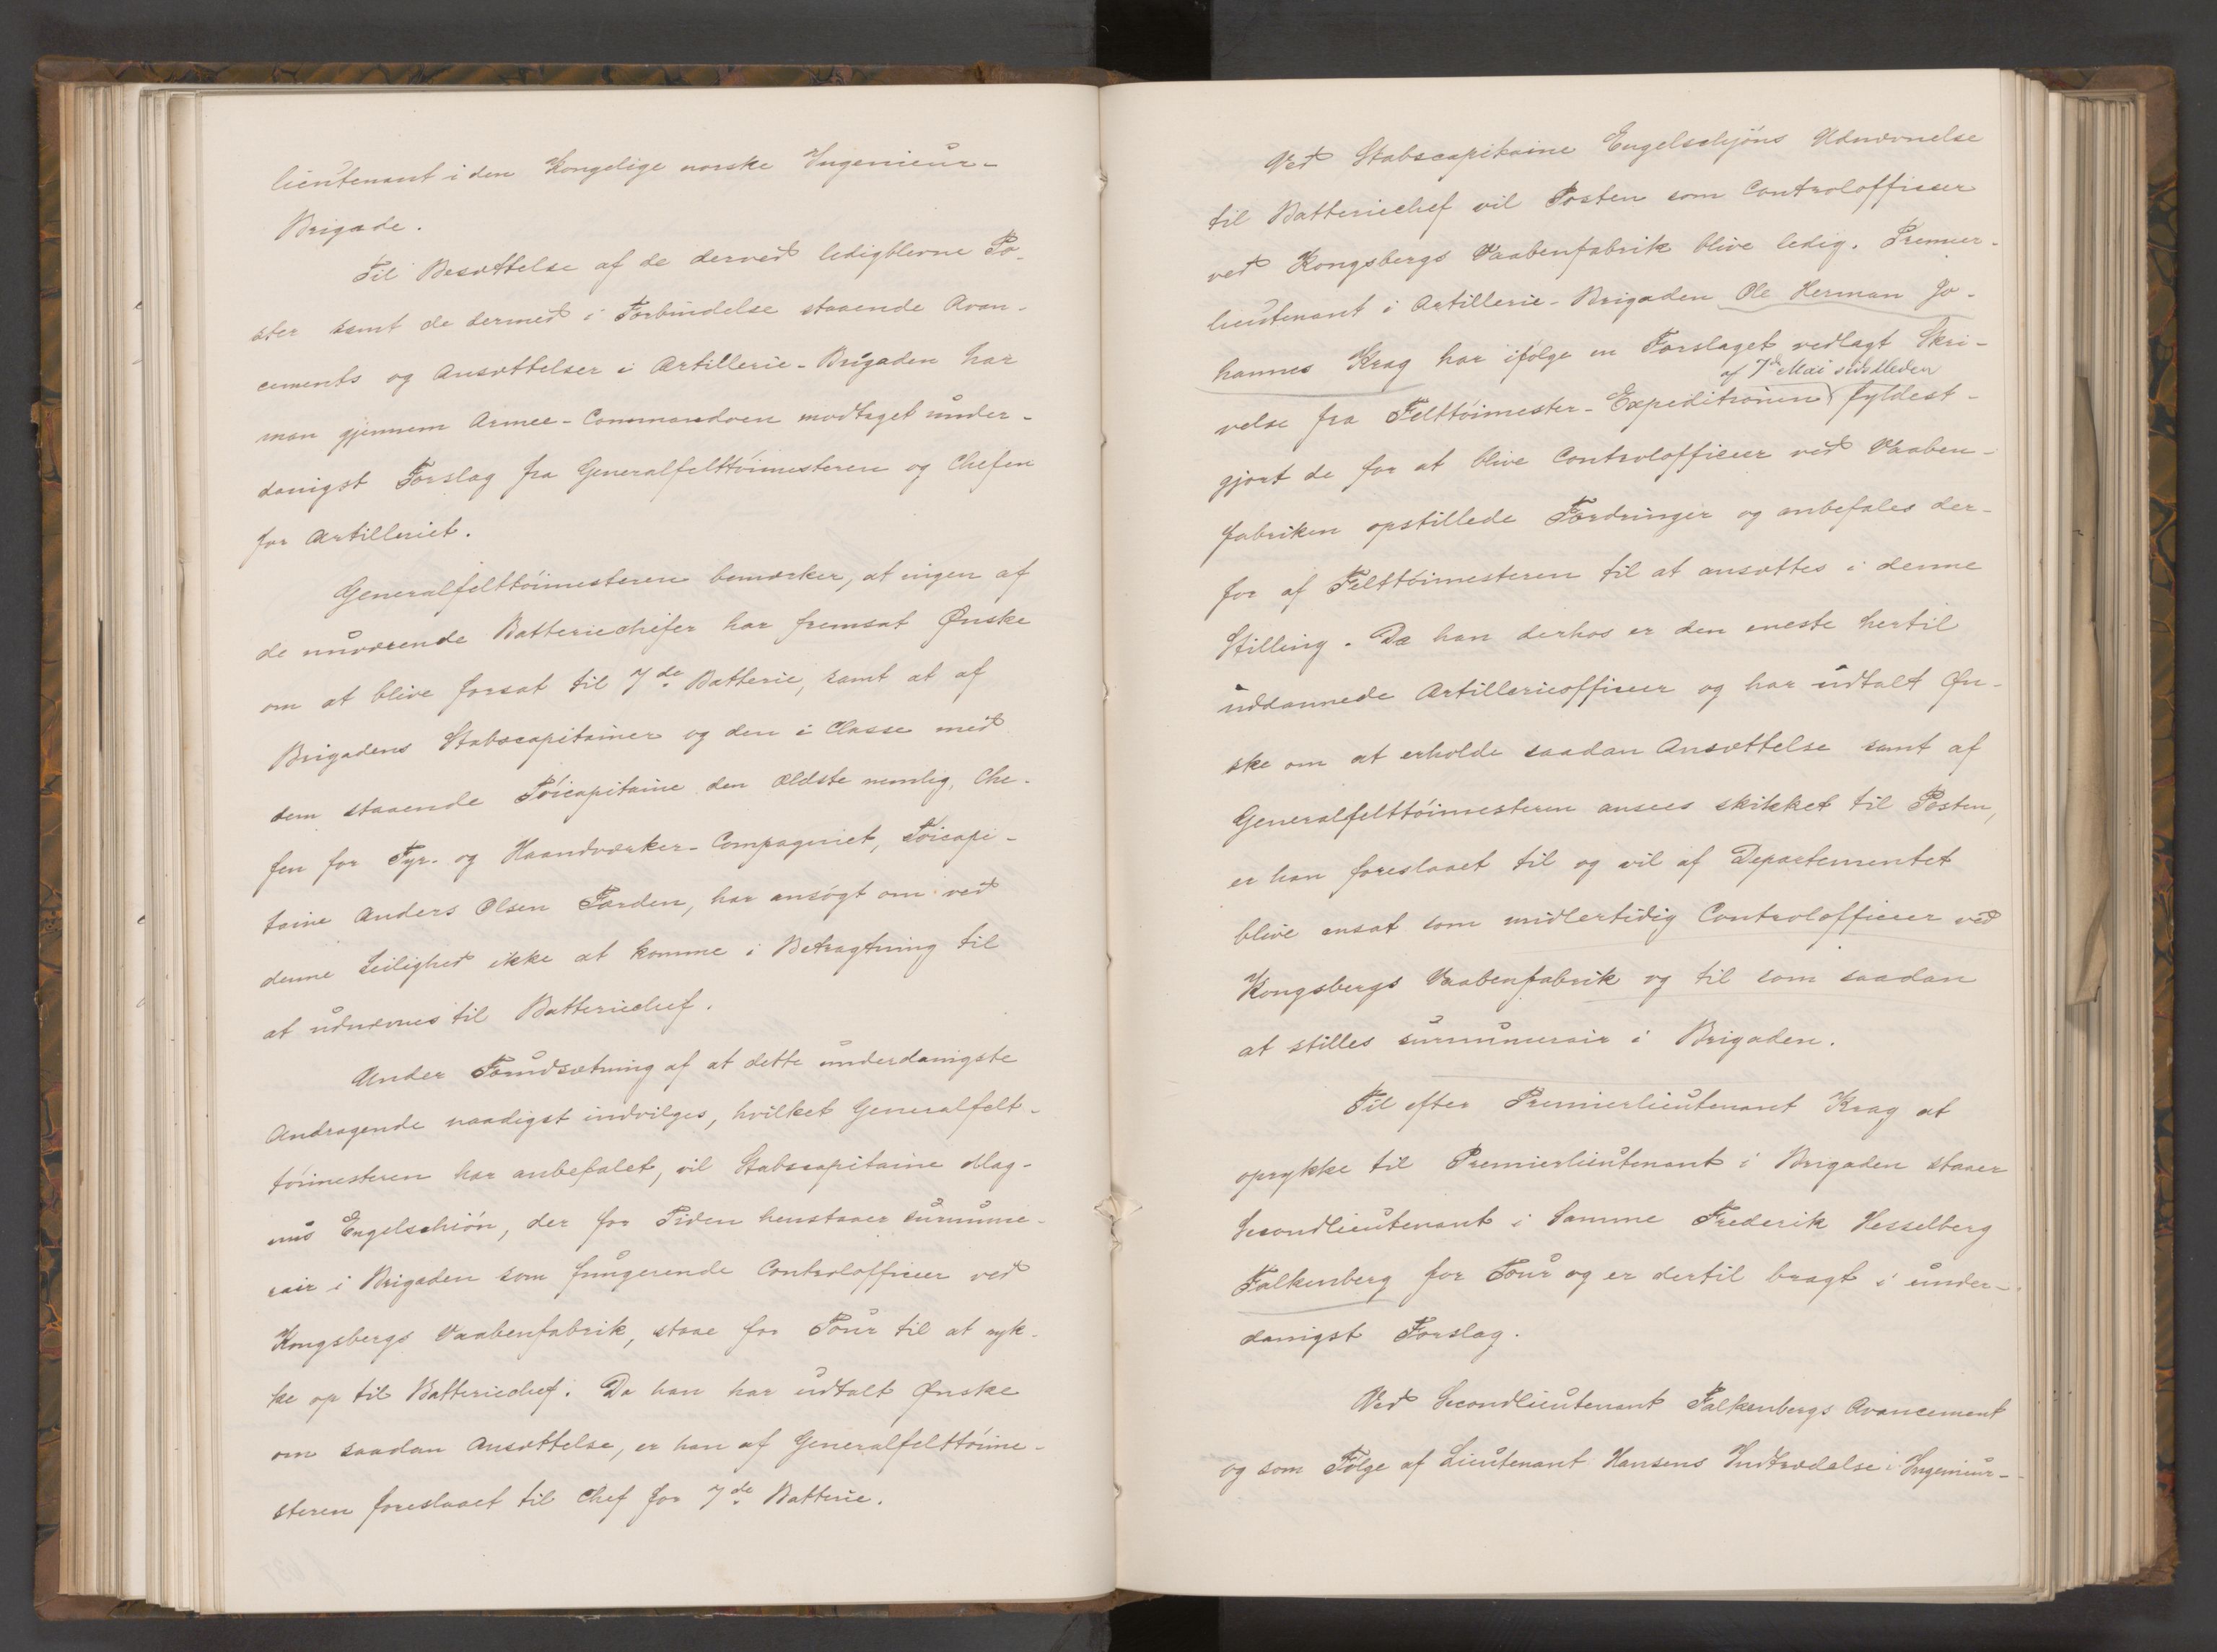 lieutenant i den Kongelige norske Ingenieur-
Brigade.
Til Besættelse af de derved ledigblevne Po-
ster samt de dermed i Forbindelse staaende Avan-
cements og Ansættelser i Artillerie-Brigaden har
man gjennem Armee-Commandoen modtaget under-
danigst Forslag fra Generalfelttöimesteren og Chefen
for Artilleriet.
Generalfelttöimesteren bemærker, at ingen af
de nuværende Batteriechefer har fremsat Ønske
om at blive forsat til 7de Batterie, samt at af
Brigadens Stabscapitainer og den i Classe med
dem staaende Töicapitaine den Ældste nemlig, Che-
fen for Fyr- og Haandværker-Compagniet, Töicapi-
taine Anders Olsen Færden, har ansögt om ved
denne Leilighed ikke at komme i Betragtning til
at udnævnes til Batteriechef.
Under Forudsætning af at dette underdanigste
Andragende naadigst indvilges, hvilket Generalfelt-
töimesteren har anbefalet, vil Stabscapitaine Mag-
nus Engelschiön, der for Tiden henstaaer surnume-
rair i Brigaden som fungerende Controlofficeer ved
Kongsbergs Vaabenfabrik, staae for Tour til at ryk-
ke op til Batteriechef. Da han har udtalt Ønske
om saadan Ansættelse, er han af Generalfelttöime-
steren foreslaaet til Chef for 7de Batterie.
Ved Stabscapitaine Engelschjöns Udnævnelse
til Batteriechef vil Posten som Controlofficeer
ved Kongsbergs Vaabenfabrik blive ledig. Premier-
lieutenant i Artillerie-Brigaden Ole Herman Jo-
hannes Krag har ifölge en Forslaget vedlagt Skri-
af 7de Mai sidstleden
velse fra Felttöimester-Expeditionen fyldest-
gjort de for at blive Controlofficeer ved Vaaben-
fabriken opstillede Fordringer og anbefales der-
for af Felttöimesteren til at ansættes i denne
Stilling. Da han derhos er den eneste hertil
uddannede Artillerieofficeer og har udtalt Øn-
ske om at erholde saadan Ansættelse samt af
Generalfelttöimesteren ansees skikket til Posten,
er han foreslaaet til og vil af Departementet
blive ansat som midlertidig Controlofficeer ved
Kongsbergs Vaabenfabrik og til som saadan
at stilles surnumerair i Brigaden.
Til efter Premierlieutenant Krag at
oprykke til Premierlieutenant i Brigaden staaer
Secondlieutenant i Samme Frederik Hesselberg
Falkenberg for Tour og er dertil bragt i under-
danigst Forslag.
Ved Secondlieutenant Falkenbergs Avancement
og som Fölge af Lieutenant Hansens Indtrædelse i Ingenieur-